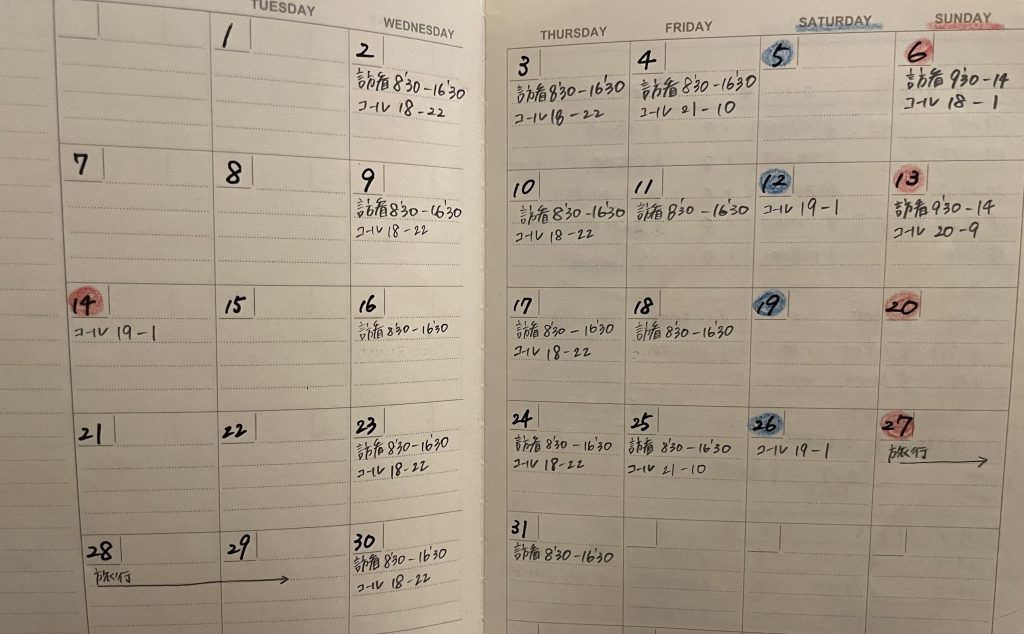 TUESDAY
WEDNESDAY
THURSDAY
FRIDAY
SATURDAY
SUNDAY
1
2
訪看 8'30-16'30
コール 18-22
3
訪看 8'30-16'30
コール 18-22
4
訪看 8'30-16'30
コール 21-10
5
6
訪看 9'30-14
コール 18-1
7
8
9
訪看 8'30-16'30
コール 18-22
10
訪看 8'30-16'30
コール 18-22
11
訪看 8'30-16'30
12
コール 19-1
13
訪看 9'30-14
コール 20-9
14
コール 19-1
15
16
訪看 8'30-16'30
17
訪看 8'30-16'30
コール 18-22
18
訪看 8'30-16'30
19
20
21
22
23
訪看 8'30-16'30
コール 18-22
24
訪看 8'30-16'30
コール 18-22
25
訪看 8'30-16'30
コール 21-10
26
コール 19-1
27
旅行
28
旅行
29
30
訪看 8'30-16'30
コール 18-22
31
訪看 8'30-16'30